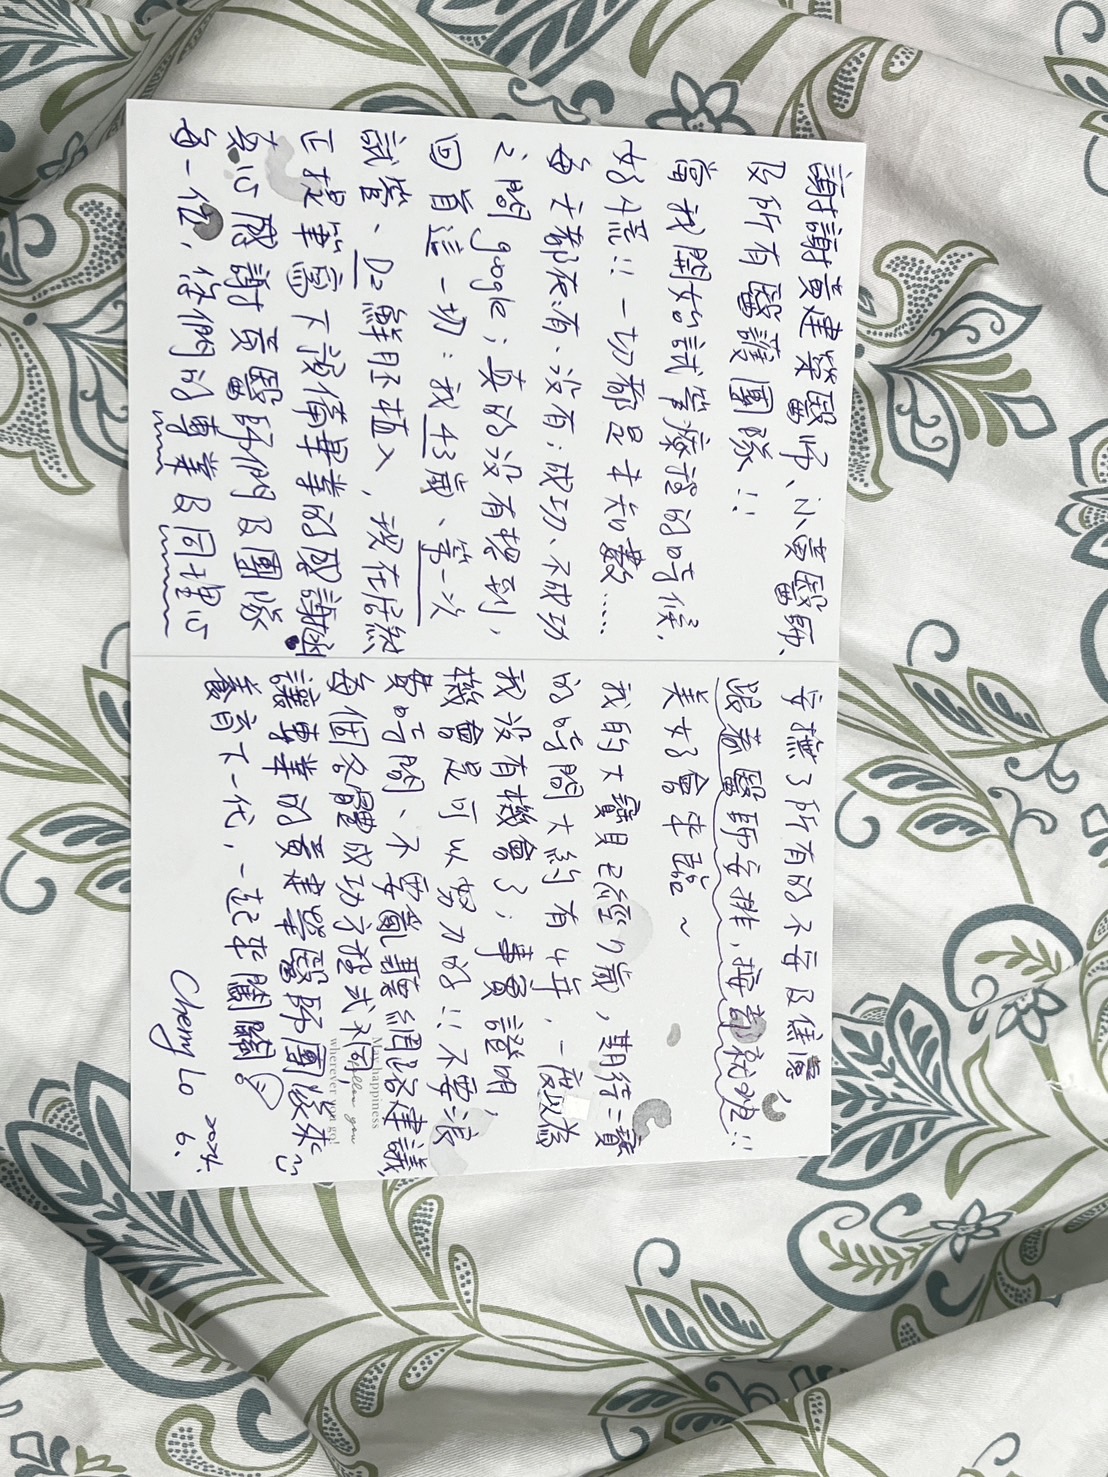 謝謝黃建榮醫師、小黃醫師、
及所有醫護團隊!!
當我開始試管療程的時候,
好慌!! 一切都是未知數.....
每天都在:有、沒有;成功、不成功
之間google;真的沒有想到,
回首這一切:我43歲、第一次
試管、D2鮮胚植入,現在居然
正提筆寫下預備畢業的感謝函
真心感謝黃醫師們及團隊
每一位,您們的專業及同理心
安撫了所有的不安及焦慮,
跟著醫師安排,按部就班!!
美好會來臨~
我的大寶貝已經7歲,期待二寶
的時間大約有4年,一度以為
我沒有機會了;事實證明,
機會是可以努力的!! 不要浪
費時間、不要亂聽網路建議,
May happiness
每個各體成功方程式不同,
follow you
wherever you go!
讓專業的黃建榮醫師團隊來
養育下一代,一起來闖關!
2024.
Cherry Lo 6.